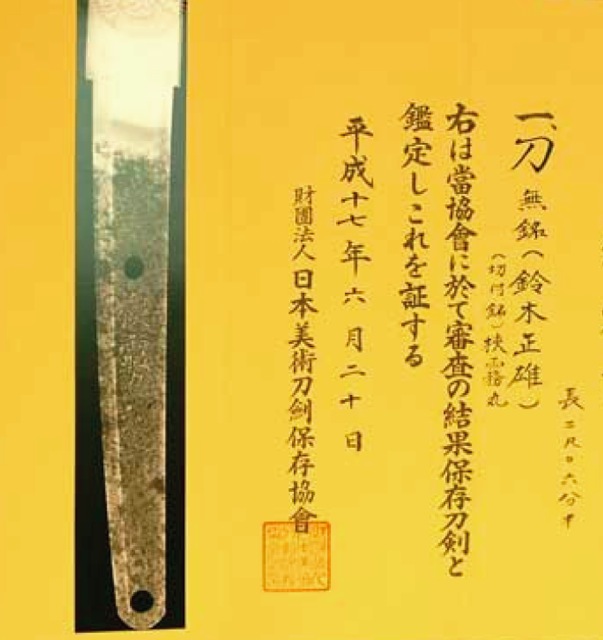 長二尺〇六分半
一、刀 無銘(鈴木正雄)
(切付銘)挟雨務丸
右は當協會に於て審査の結果保存刀剣と
鑑定しこれを証する
平成十七年六月二十日
財團法人日本美術刀剣保存協會